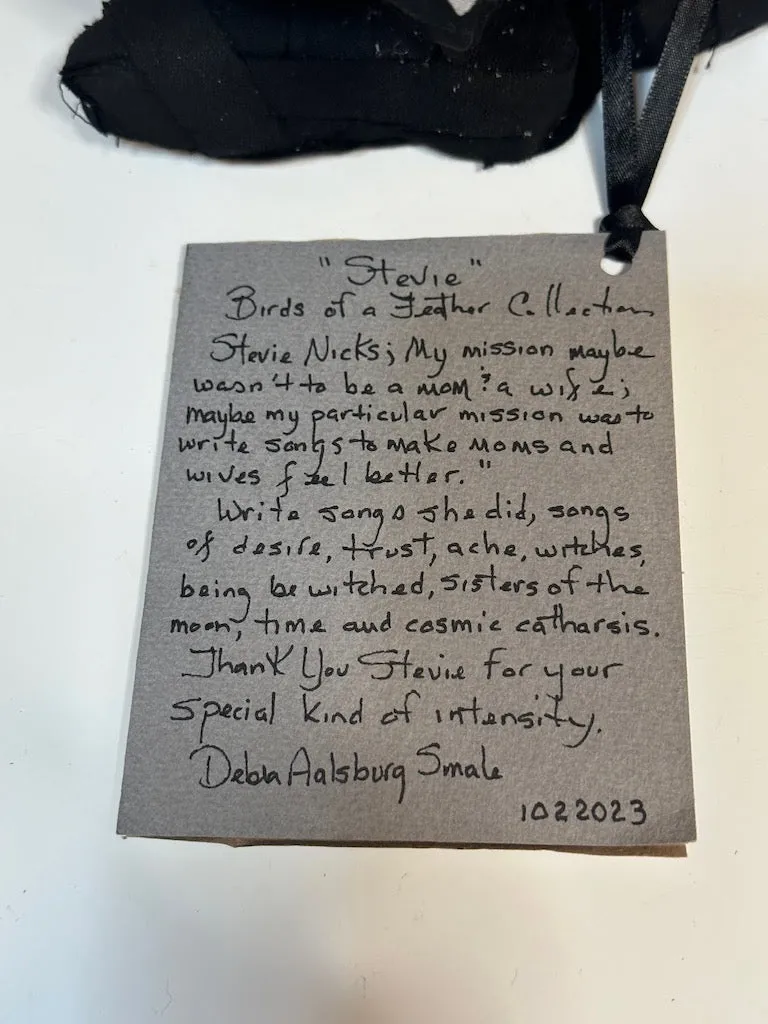 "Stevie"
Birds of a Feather Collection
Stevie Nicks; My mission maybe
wasn't to be a mom & a wife;
maybe my particular mission was to
write songs to make moms and
wives feel better."
Write songs she did, songs
of desire, trust, ache, witches,
being bewitched, sisters of the
moon, time and cosmic catharsis.
Thank You Stevie for your
special kind of intensity.
Debra Aalsburg Smale
1022023